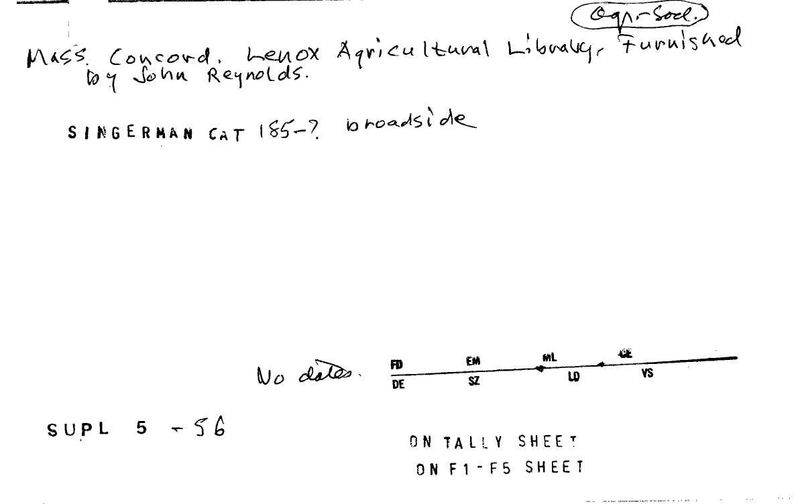 Agr. Socl.
Mass. Concord. Lenox Agricultural Library, Furnished
by John Reynolds.
SINGERMAN CAT 185-? broadside
No dates. FD EM ML GE
DE SZ LD VS
SUPL 5 - 56
ON TALLY SHEET
ON F1-F5 SHEET